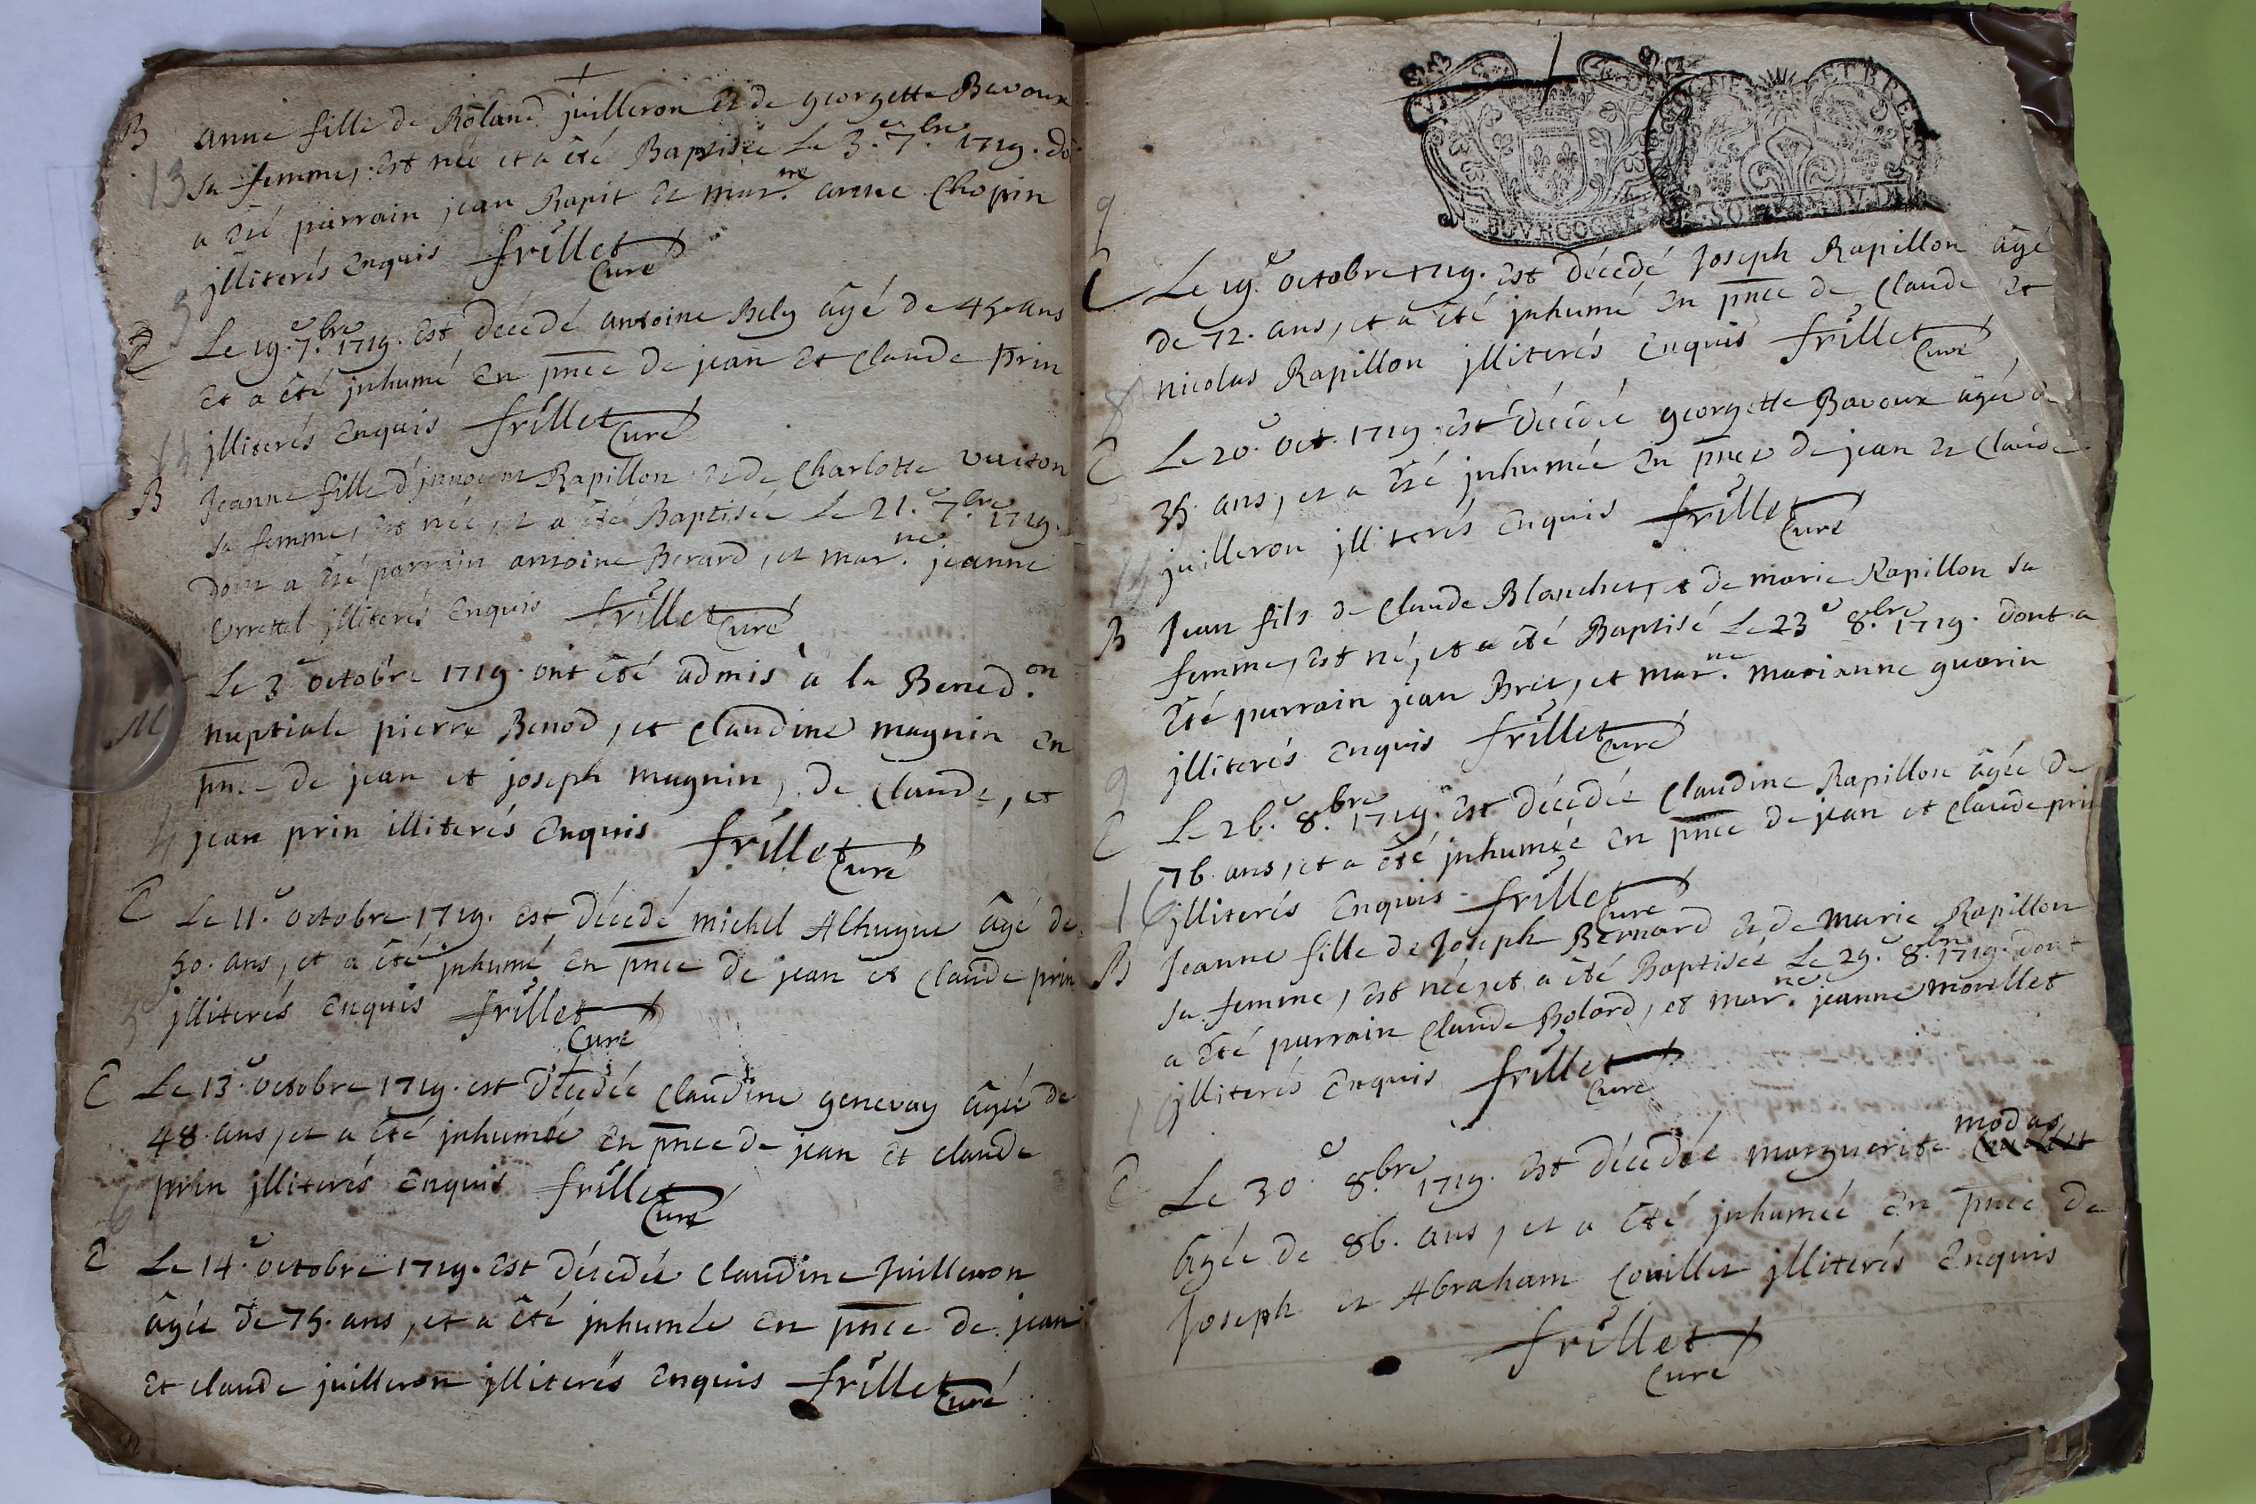 B
anne fille de Roland juilleron et de georgette Bavoux
13
sa femme, est née et a été Baptisée Le 3.e 7.bre 1719. do
a été parrain jean Rapit et mar.ne anne Chopin
jlliterés Enquis frillet
Curé
C
Le 19.e 7.bre 1719. est décédé antoine Bely âgé de 45 ans
et a été jnhumé En pnce de jean et Claude Prin
jlliterés Enquis frillet
Curé
B
Jeanne fille d'jnnocent Rapillon et de Charlotte vuiton
sa femme, est née, et a été Baptisée Le 21.e 7.bre 1719.
dont a été parrain antoine Berard, et mar.ne jeanne
jlliterés Enquis frillet
Curé
Le 3.e octobre 1719. ont été admis à la Bened.on
M
nuptiale pierre Benod, et Claudine magnin En
pnce de jean et joseph magnin, de Claude, et
jean prin illiterés Enquis frillet
Curé
C
Le 11.e octobre 1719. est décédé michel Alhugue âgé de
50. ans, et a été jnhumé En pnce de jean et Claude prin
jlliterés Enquis frillet
Curé
C
Le 13.e octobre 1719. est décédée Claudine genevay âgée de
48. ans, et a été jnhumée En pnce de jean et claude
prin jlliterés Enquis frillet
Curé
C
Le 14.e octobre 1719. est décédée Claudine Juilleron
âgée de 75. ans, et a été jnhumée En pnce de jean
et claude juilleron jlliterés Enquis frillet
Curé
9
C
Le 19.e octobre 1719. est décédé Joseph Rapillon âgé
de 72. ans, et a été jnhumé En pnce de Claude et
nicolas Rapillon jlliterés Enquis frillet
Curé
8
C
Le 20.e oct. 1719. est décédée georgette Bavoux âgée de
35. ans, et a été jnhumée En pnce de jean et Claude
juilleron jlliterés Enquis frillet
Curé
B
Jean fils de Claude Blanchet, et de marie Rapillon sa
femme, est né, et a été Baptisé Le 23.e 8.bre 1719. dont a
été parrain jean Bret, et mar.ne marianne guarin
jlliterés Enquis frillet
Curé
9
C
Le 26.e 8.bre 1719. est décédée Claudine Rapillon âgée de
76. ans, et a été jnhumée En pnce de jean et Claude prin
jlliterés Enquis frillet
Curé
16
B
Jeanne fille de Joseph Bernard et de marie Rapillon
sa femme, est née, et a été Baptisée Le 29.e 8.bre 1719. dont
a été parrain Claude Bolard, et mar.ne jeanne morellet
jlliterés Enquis frillet
Curé
modas
C
Le 30.e 8.bre 1719. est décédée marguerite
âgée de 86. ans, et a été jnhumée En pnce de
Joseph et Abraham Couillet jlliterés Enquis
frillet
Curé